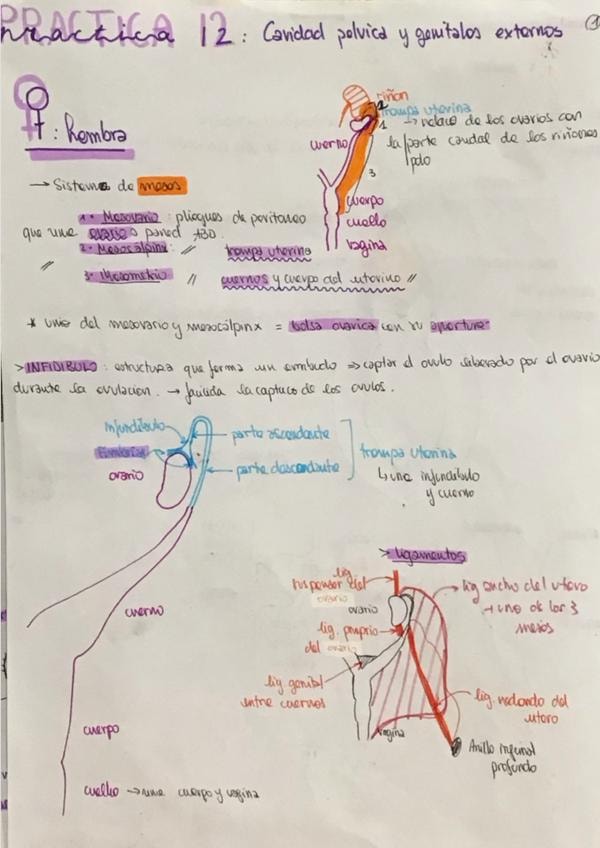 PRACTICA 12: Cavidad pelvica y genitales externos
1
: hembra
riñon
trompa uterina
→ relacc de los ovarios con
la parte caudal de los riñones
cuerno
2
1
3
cuerpo
cuello
vagina
→ Sistema de mesos
1. Mesovario: pliegues de peritoneo
que une ovarios pared ABD
2. Mesosalpinx: // trompa uterina
// 3. Mesometrio // cuernos y cuerpo del uterino //
* unio del mesovario y mesocálpinx = bolsa ovarica con su apertura
> INFIDIBULO: estructura que forma un embudo ⇒ captar el ovulo liberado por el ovario
durante la ovulacion. → facilida la captuco de los ovulos.
infundibulo
fimbrias
ovario
parte ascendante
parte dascendante
trompa uterina
↳ une infundibulo
y cuerno
cuerno
cuerpo
cuello → une cuerpo y vagina
> ligamentos
lig.
suspensor del
ovario
ovario
lig. propio
del ovario
lig genital
entre cuernos
vagina
lig ancho del utero
→ uno de los 3
mesos
lig. redondo del
utero
Anillo inguinal
profundo